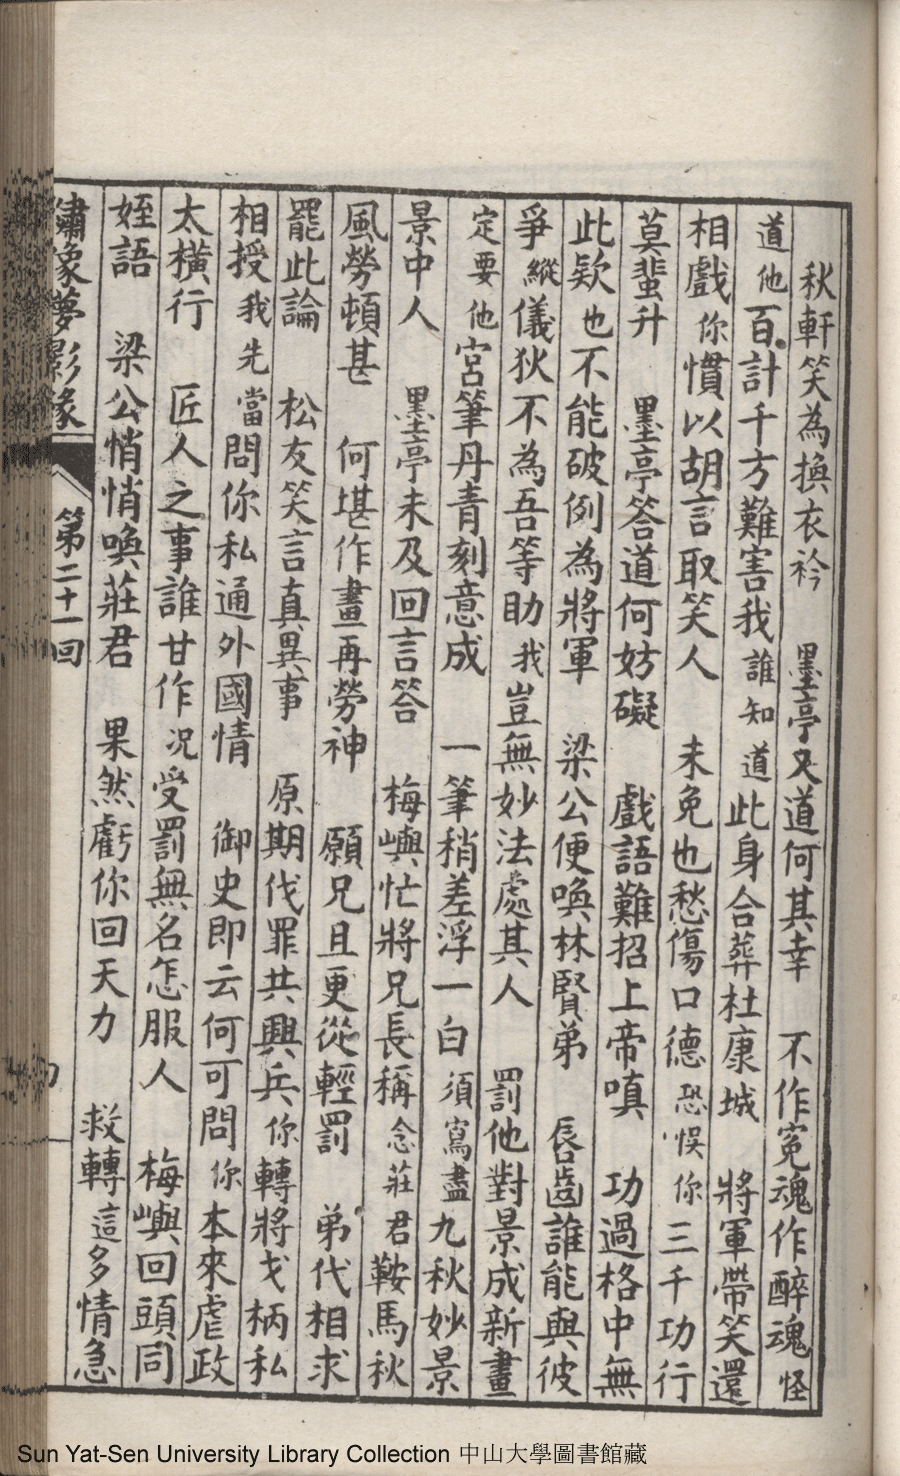 秋軒笑為換衣衿　墨亭又道何其幸　不作冤魂作醉魂怪
道他百計千方難害我誰知道此身合葬杜康城　將軍帶笑還
相戲你慣以胡言取笑人　未免也愁傷口德恐悞你三千功行
莫蜚升　墨亭答道何妨礙　戲語難招上帝嗔　功過格中無
此欵也不能破例為將軍　梁公便喚林賢弟　唇齒誰能與彼
爭縱儀狄不為吾等助我豈無妙法處其人　罰他對景成新畫
定要他宮筆丹青刻意成　一筆稍差浮一白須寫盡九秋妙景
景中人　墨亭未及回言答　梅嶼忙將兄長稱念莊君鞍馬秋
風勞頓甚　何堪作畫再勞神　願兄且更從輕罰　弟代相求
罷此論　松友笑言真異事　原期伐罪共興兵你轉將戈柄私
相授我先當問你私通外國情　御史即云何可問你本來虐政
太橫行　匠人之事誰甘作况受罰無名怎服人　梅嶼回頭同
姪語　梁公悄悄喚莊君　果然虧你回天力　救轉這多情急
繡像夢影緣　第二十一回
Sun Yat-Sen University Library Collection 中山大學圖書館藏